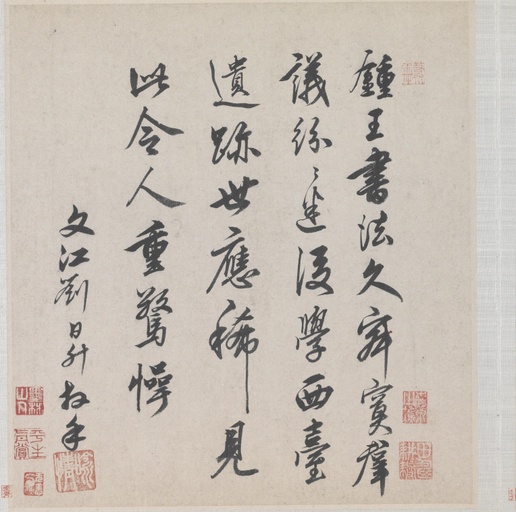 鍾王書法久寂寞羣
議紛〻迷後學西臺
遺跡世應稀見
此令人重驚愕
文江劉日升